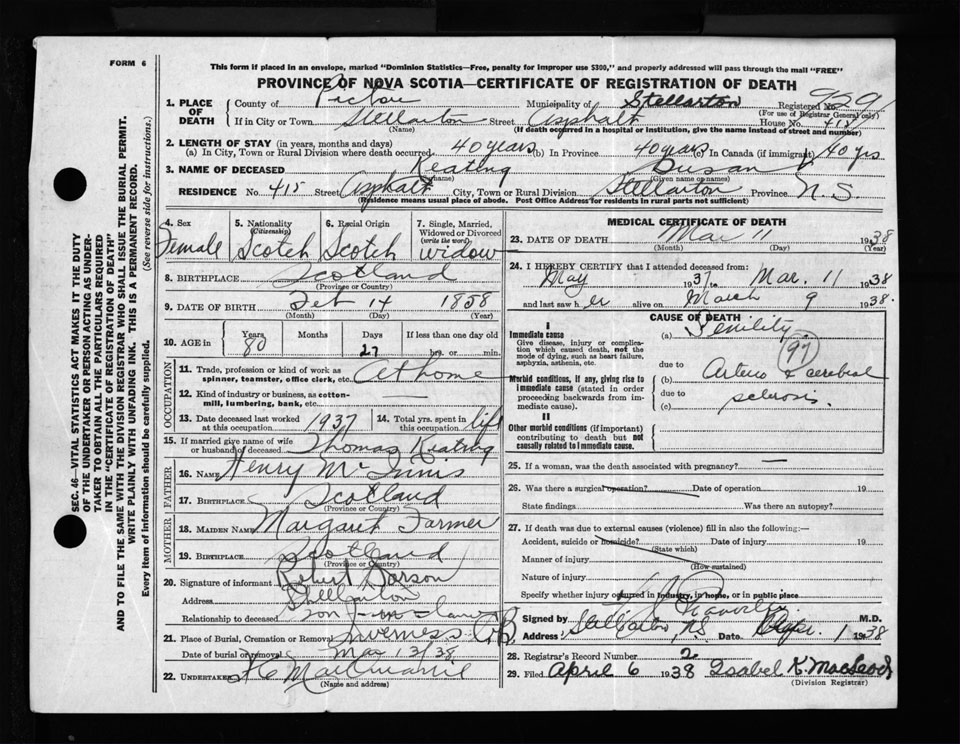 FORM 6
This form if placed in an envelope, marked "Dominion Statistics—Free, penalty for improper use $300," and properly addressed will pass through the mail "FREE"
PROVINCE OF NOVA SCOTIA—CERTIFICATE OF REGISTRATION OF DEATH
SEC. 46—VITAL STATISTICS ACT MAKES IT THE DUTY
OF THE UNDERTAKER OR PERSON ACTING AS UNDER-
TAKER TO OBTAIN ALL THE PARTICULARS REQUIRED
IN THE "CERTIFICATE OF REGISTRATION OF DEATH"
AND TO FILE THE SAME WITH THE DIVISION REGISTRAR WHO SHALL ISSUE THE BURIAL PERMIT.
WRITE PLAINLY WITH UNFADING INK. THIS IS A PERMANENT RECORD.
Every item of information should be carefully supplied. (See reverse side for instructions.)
1. PLACE OF DEATH County of Pictou Municipality of Stellarton Registered No. 929
(For use of Registrar General only)
If in City or Town Stellarton Street Asphalt House No. 415
(Name) (If death occurred in a hospital or institution, give the name instead of street and number)
2. LENGTH OF STAY (in years, months and days)
(a) In City, Town or Rural Division where death occurred 40 years (b) In Province 40 years (c) In Canada (if immigrant) 40 yrs
3. NAME OF DECEASED Keating Susan
(Surname) (Given name or names)
RESIDENCE No. 415 Street Asphalt City, Town or Rural Division Stellarton Province N.S.
(Residence means usual place of abode. Post Office Address for residents in rural parts not sufficient)
4. Sex Female
5. Nationality (Citizenship) Scotch
6. Racial Origin Scotch
7. Single, Married, Widowed or Divorced (write the word) widow
8. BIRTHPLACE Scotland
(Province or Country)
9. DATE OF BIRTH Feb 14 1858
(Month) (Day) (Year)
10. AGE in Years 80 Months Days 27 If less than one day old hrs. or min.
OCCUPATION
11. Trade, profession or kind of work as spinner, teamster, office clerk, etc. At home
12. Kind of industry or business, as cotton-mill, lumbering, bank, etc.
13. Date deceased last worked at this occupation 1937
14. Total yrs. spent in this occupation life
15. If married give name of wife or husband of deceased Thomas Keating
FATHER
16. NAME Henry McInnis
17. BIRTHPLACE Scotland
(Province or Country)
MOTHER
18. MAIDEN NAME Margaret Farmer
19. BIRTHPLACE Scotland
(Province or Country)
20. Signature of informant Robert
Address Stellarton
Relationship to deceased son-in-law
21. Place of Burial, Cremation or Removal Inverness C.B.
Date of burial or removal Mar 13/38
22. UNDERTAKER
(Name and address)
MEDICAL CERTIFICATE OF DEATH
23. DATE OF DEATH Mar 11 1938
(Month) (Day) (Year)
24. I HEREBY CERTIFY that I attended deceased from:
May 1937 to Mar. 11 1938
and last saw her alive on March 9 1938.
CAUSE OF DEATH
I
Immediate cause
Give disease, injury or complication which caused death, not the mode of dying, such as heart failure, asphyxia, asthenia, etc.
(a) Senility
97
due to
Morbid conditions, if any, giving rise to immediate cause (stated in order proceeding backwards from immediate cause).
(b) Arterio & cerebral
due to sclerosis.
(c)
II
Other morbid conditions (if important) contributing to death but not causally related to immediate cause.
25. If a woman, was the death associated with pregnancy? —
26. Was there a surgical operation? Date of operation 19
State findings Was there an autopsy?
27. If death was due to external causes (violence) fill in also the following:—
Accident, suicide or homicide? Date of injury 19
(State which)
Manner of injury
(How sustained)
Nature of injury
Specify whether injury occurred in industry, in home, or in public place
Signed by M.D.
Address Stellarton NS Date 1 1938
28. Registrar's Record Number 2
29. Filed April 6 1938 Isabel K. MacLeod
(Division Registrar)